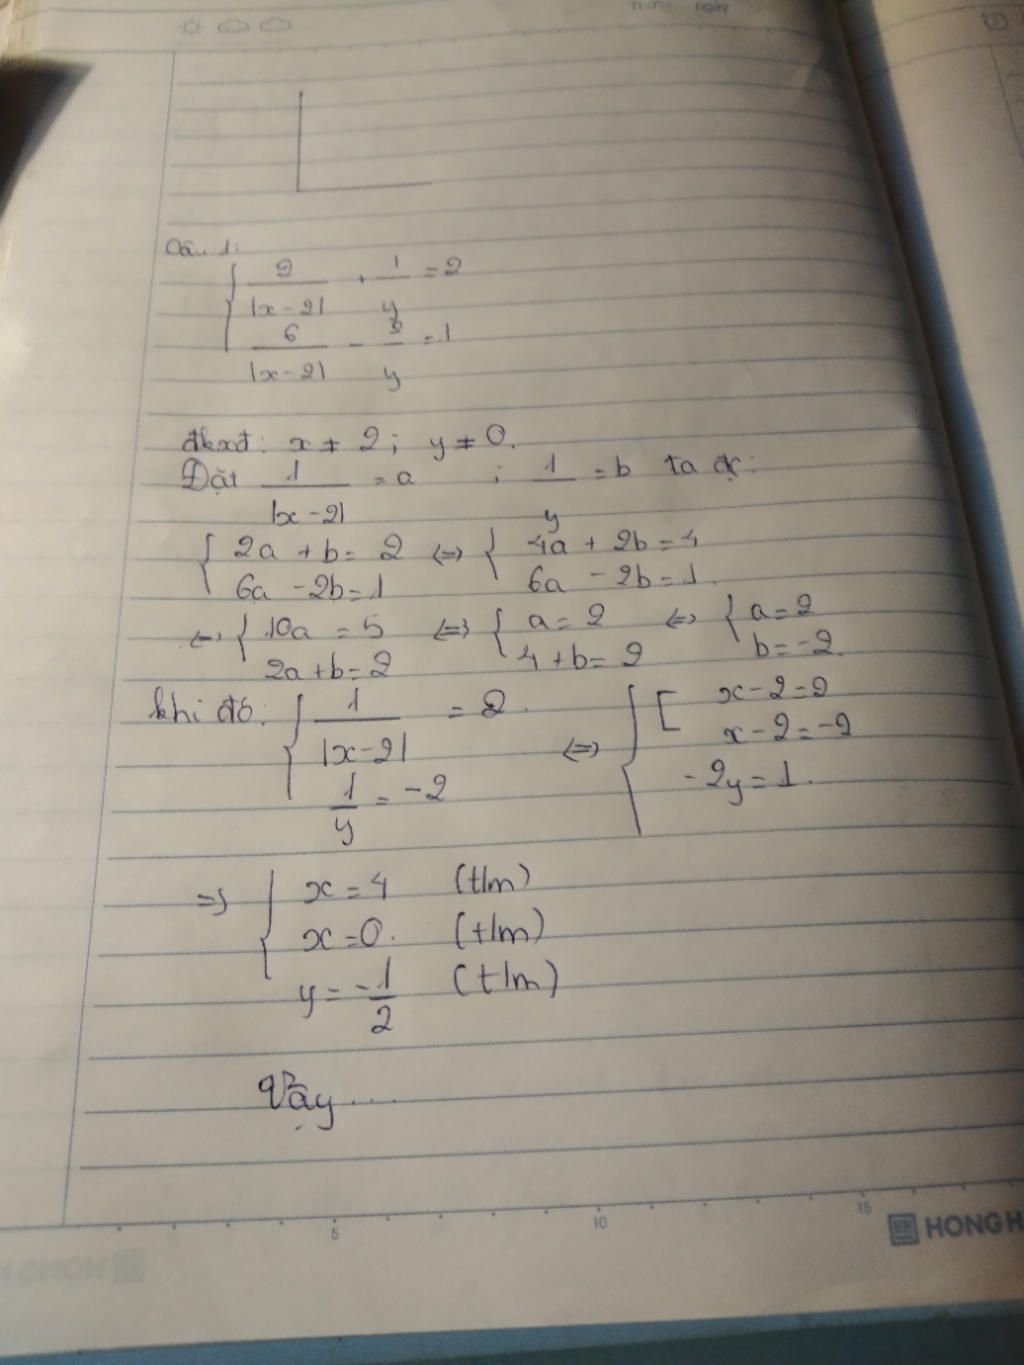 Thứ ngày
Câu 1:
{ 2/|x-2| + 1/y = 2
6/|x-2| - 2/y = 1
đkxđ: x ≠ 2; y ≠ 0.
Đặt 1/|x-2| = a ; 1/y = b ta đc:
{ 2a + b = 2 <=> { 4a + 2b = 4
6a - 2b = 1 6a - 2b = 1.
<=> { 10a = 5 <=> { a = 2 <=> { a = 2
2a + b = 2 4 + b = 2 b = -2.
khi đó: { 1/|x-2| = 2. <=> { [ x - 2 = 2
x - 2 = -2
1/y = -2 -2y = 1.
=> { x = 4 (t/m)
x = 0. (t/m)
y = -1/2 (t/m)
Vậy....
5 10 15
HONG H